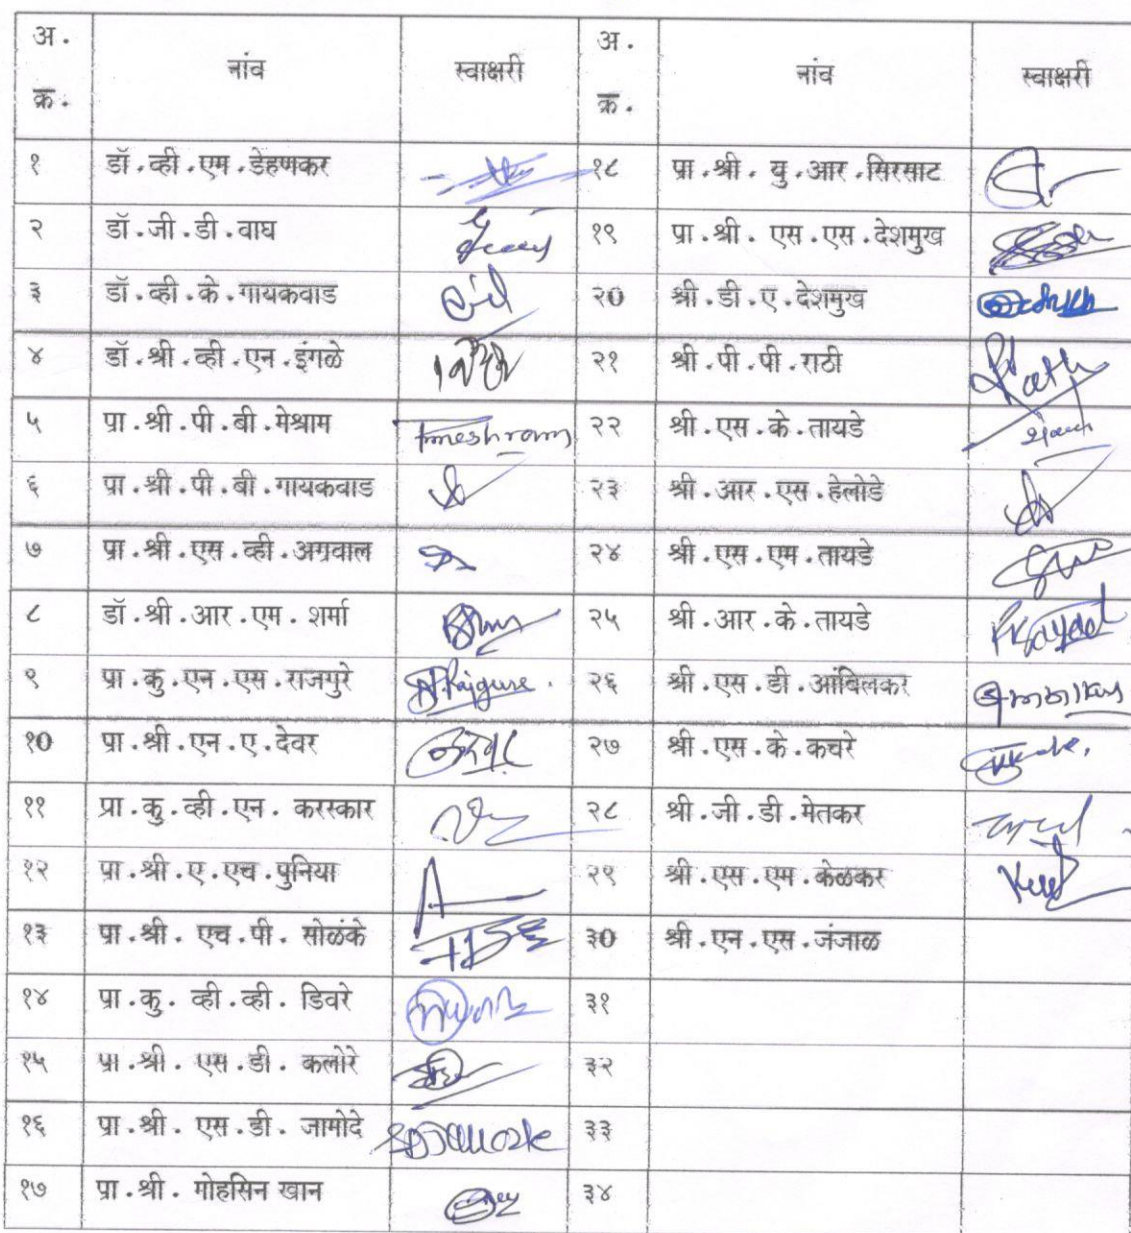 अ. नांव स्वाक्षरी अ. नांव स्वाक्षरी
क्र. क्र.
१ डॉ.व्ही.एम.डेहणकर १८ प्रा.श्री. यु.आर.सिरसाट
२ डॉ.जी.डी.वाघ १९ प्रा.श्री. एस.एस.देशमुख
३ डॉ.व्ही.के.गायकवाड २0 श्री.डी.ए.देशमुख
४ डॉ.श्री.व्ही.एन.इंगळे २१ श्री.पी.पी.राठी
५ प्रा.श्री.पी.बी.मेश्राम Pmeshram २२ श्री.एस.के.तायडे
६ प्रा.श्री.पी.बी.गायकवाड २३ श्री.आर.एस.हेलोडे
७ प्रा.श्री.एस.व्ही.अग्रवाल २४ श्री.एस.एम.तायडे
८ डॉ.श्री.आर.एम. शर्मा २५ श्री.आर.के.तायडे
९ प्रा.कु.एन.एस.राजगुरे २६ श्री.एस.डी.आंबिलकर
१0 प्रा.श्री.एन.ए.देवर २७ श्री.एस.के.कचरे
११ प्रा.कु.व्ही.एन. करस्कार २८ श्री.जी.डी.मेतकर
१२ प्रा.श्री.ए.एच.पुनिया २९ श्री.एस.एम.केळकर
१३ प्रा.श्री. एच.पी. सोळंके ३0 श्री.एन.एस.जंजाळ
१४ प्रा.कु. व्ही.व्ही. डिवरे ३१
१५ प्रा.श्री. एस.डी. कलोरे ३२
१६ प्रा.श्री. एस.डी. जामोदे ३३
१७ प्रा.श्री. मोहसिन खान ३४